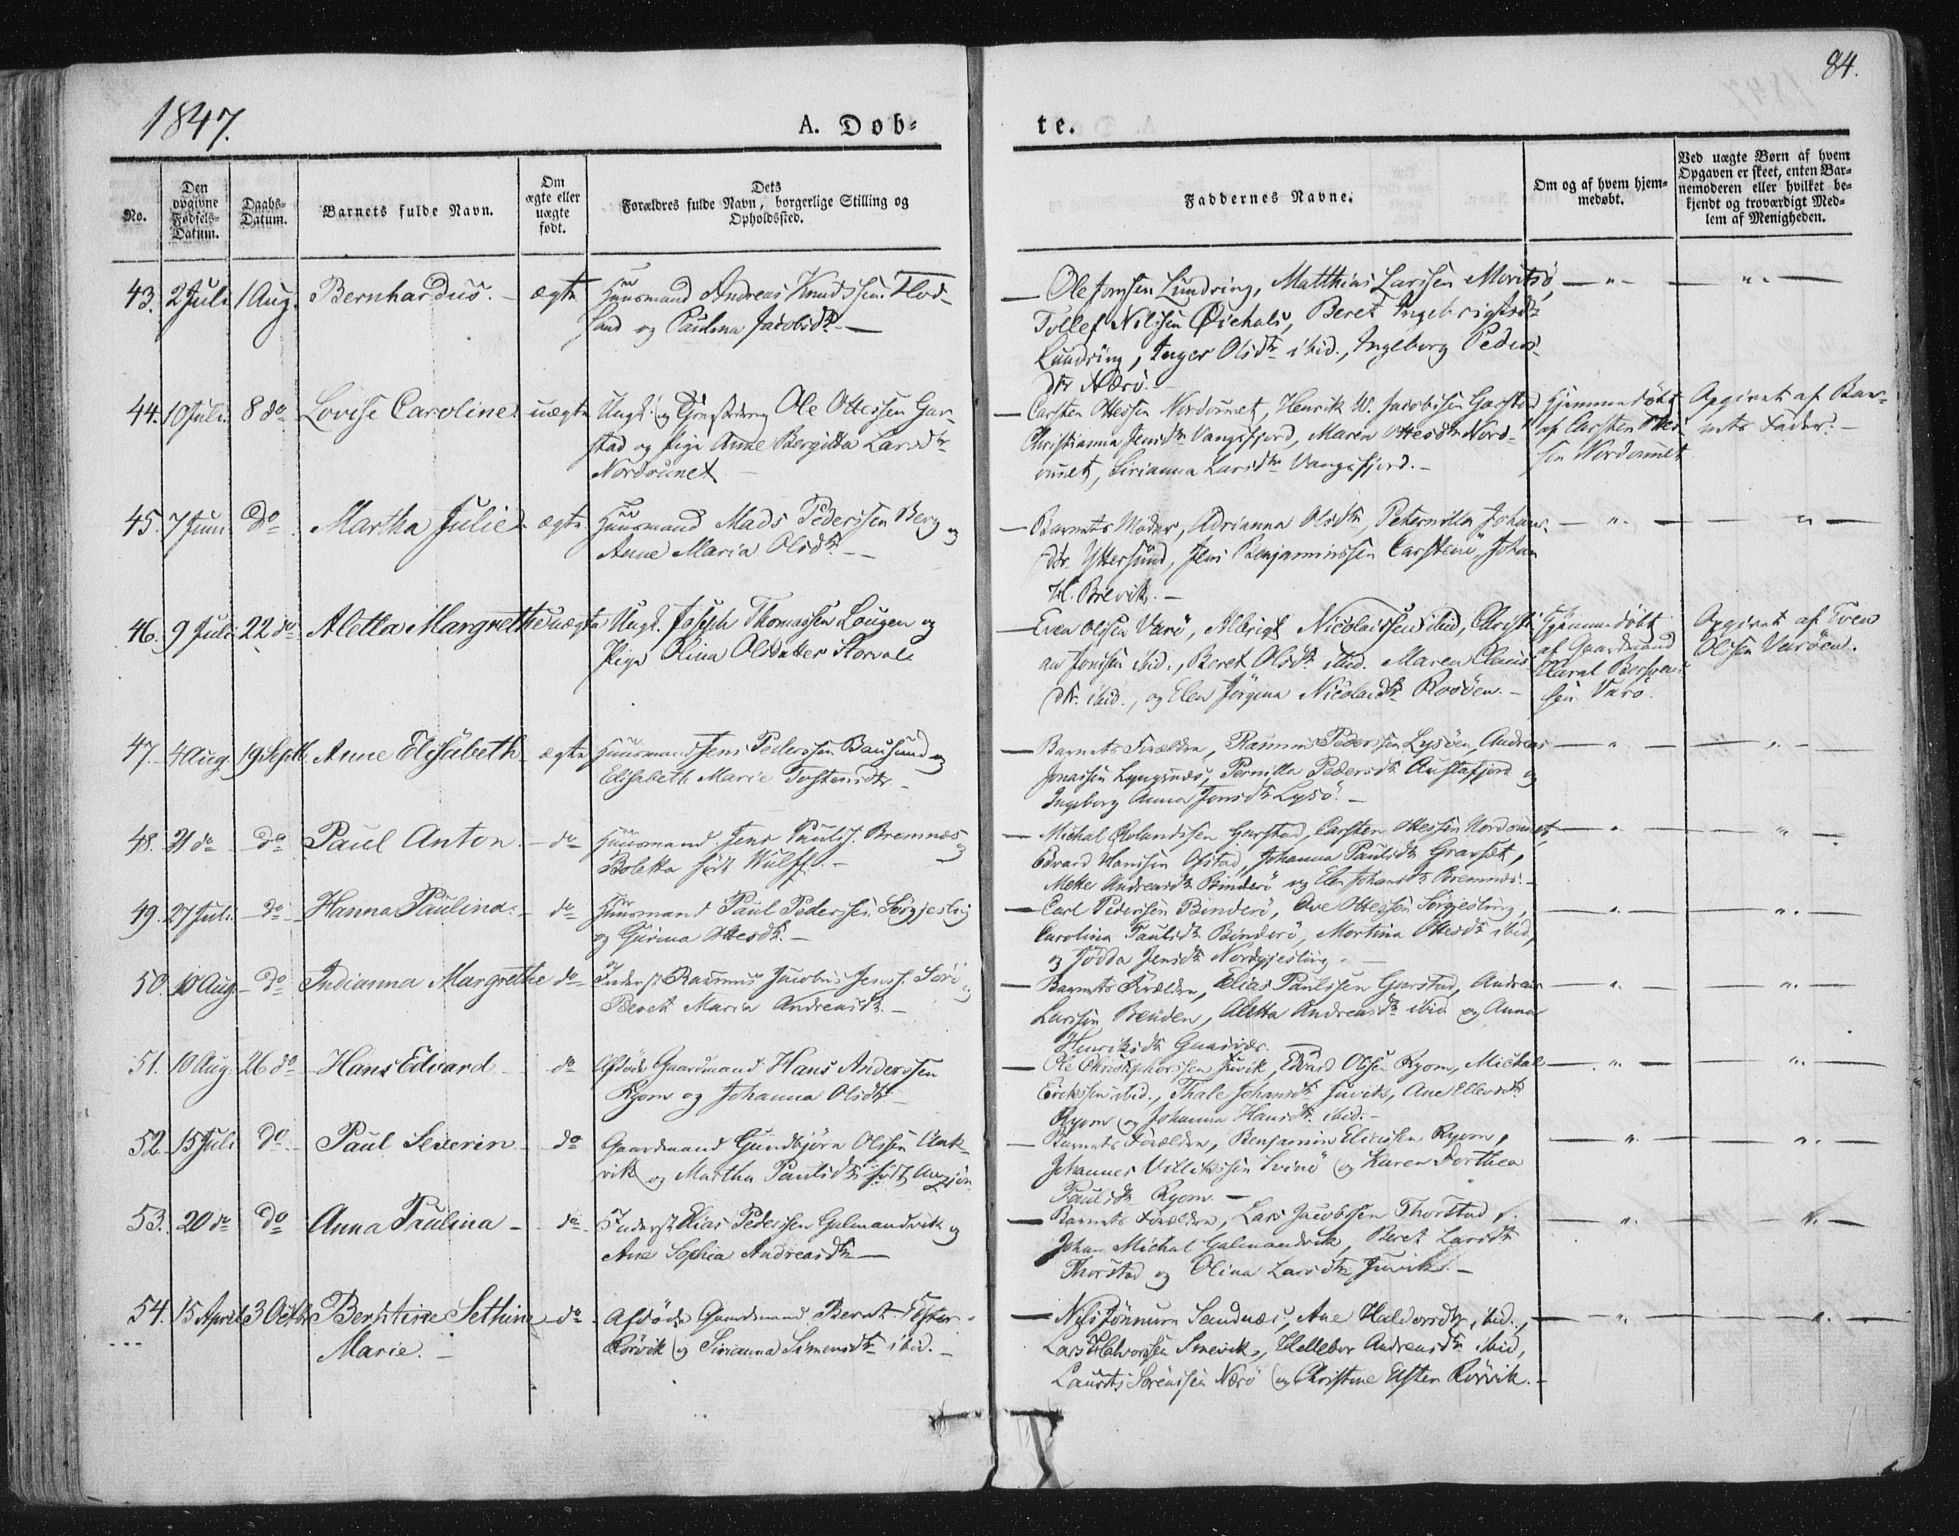 84.
1847.
A. Døb-
te.
No.
Den opgivne Fødsels-Datum.
Daabs-Datum.
Barnets fulde Navn.
Om ægte eller uægte født.
Dets Forældres fulde Navn, borgerlige Stilling og Opholdssted.
Faddernes Navne.
Om og af hvem hjem-
medøbt.
Ved uægte Børn af hvem
Opgaven er skeet, enten Bar-
nemoderen eller hvilket be-
kjendt og troværdigt Med-
lem af Menigheden.
43. 2 Juli 1 Aug. Bernhardus. ægte Huusmand Andreas Knudssen Flod-
land og Paulina Jacobsdtr
Ole Jonsen Lundring, Matthias Larssen
Tollef Nilssen Øiehals, Beret Ingebrigtsdtr
Lundring, Inger Olsdtr ibid., Ingeborg Peders-
dtr Nærö.
44. 10 Juli 8 do Lovise Caroline uægte Ungk. og Ole Ottessen Gar-
stad og Pige Anne Bergitta Larsdtr
Nordvunet
Carsten Ottessen Henrik W. Jacobssen Garstad
Christianna Jensdtr Vangsfjord, Maren Ottesdtr Nord-
Sirianna Larsdtr Vangsfjord.
Hjemmedøbt
af Carsten Ottes-
sen
Opgivet af Bar-
nets Fader.
45. 7 Juni do Martha Julie ægte Huusmand Mads Pederssen Berg og
Anne Maria Olsdtr
Barnets Moder, Adrianna Olsdtr, Peternilla Johans-
dtr. Yttersund, Jens Benjaminssen Carstenö, Johan
H. Brevik.
46. 9 Juli 22 do Aletta Margrethe uægte Ungk. Joseph Thomassen Lougen og
Pige Olina Olsdatter
Even Olssen Varö, Albrigt Nicolaissen ibid, Christi-
an Jonssen ibid., Beret Olsdtr ibid. Maren Claus-
dtr. ibid., og Elen Jörgina Nicolaidtr
Hjemmedöbt
af Gaardmand
sen Varö.
Opgivet af Even
Olssen
47. 4 Aug. 19 Septb. Anne Elisabeth ægte Huusmand Jens Pederssen Bausund og
Elisabeth Marie
Barnets Forældre, Rasmus Pederssen Lysöen, Andreas
Jonassen Lyngsnæs, Pernilla Pedersdtr og
Ingeborg Anna Jonsdtr Lysö.
48. 21 do do Paul Anton. do Huusmand Jens Pauls. Bremnæs og
Boletta født Wulff.
Michal Garstad, Carsten Ottessen
Edvard Hanssen Ofstad, Johanna Paulsdtr Gravset,
Mette Andreasdtr Binderö og Elen Johansdtr Bremnæs.
49. 27 Juli do Hanna Paulina. do Huusmand Paul Pederssen Sörgjesling
og Gurina Ottesdtr.
Carl Pederssen Binderö, Ove Ottessen Sörgjesling,
Carolina Paulsdtr Binderö, Martina Ottesdtr ibid,
og Jensdtr Nordgjesling
50. 10 Aug. do Indianna Margrethe do Inderst Rasmus Jacobus Jenss. Sörö og
Beret Maria Andreasdtr.
Barnets Forældre, Elias Paulssen Garstad, Andreas
Larssen Aletta Andreasdtr ibid og Anna
Henriksdtr
51. 10 Aug. 26 do Hans Edvard do Afdöde Gaardmand Hans Anderssen
Ryom og Johanna Olsdtr.
Ole Christophorssen Juvik, Edvard Olssen Ryom, Michal
Erikssen ibid., Thale Johansdtr Juvik, Ane Ellevsdtr
Ryom og Johanna Hansdtr ibid.
52. 15 Juli do Paul Severin do Gaardmand Gundbjörn Olssen
vik og Martha Paulsdtr
Barnets Forældre, Benjamin Ryom,
Johannes Svinö og Karen Dorthea
Paulsdtr Ryom.
53. 20 do do Anna Paulina do Inderst Elias Pederssen Galmandvik og
Ane Sophia Andreasdtr
Barnets Forældre, Lars Jacobssen Thorstad,
Johan Michal Galmandvik, Beret Larsdtr
Thorstad og Olina Larsdtr Juvik.
54. 15 April 3 Octbr Sethine do Afdöde Gaardmand Bernt
Rörvik og Sirianna Simensdtr ibid.
Marie.
Nils Sandnæs, Ane Haldorsdtr ibid.,
Lars Halvorssen Andreasdtr ibid,
Laurits Sörenssen Nærö og Christine Rörvik.